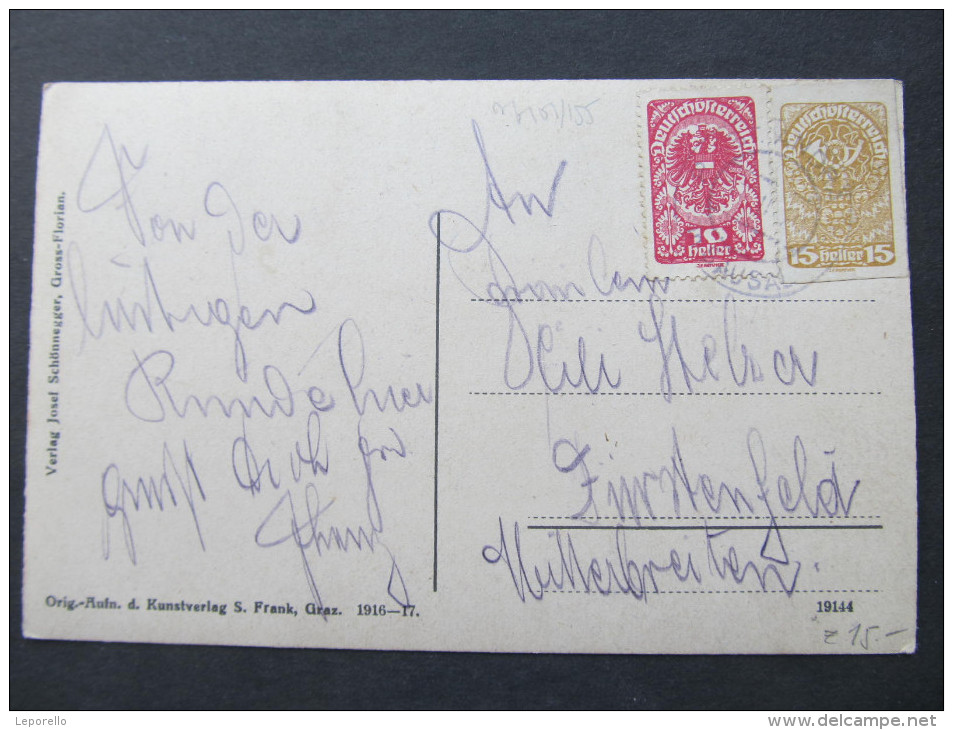 Verlag Josef Schönnegger, Gross-Florian.
Von der
lustigen
grüßt Dich
Orig.-Aufn. d. Kunstverlag S. Frank, Graz. 1916—17.
An
Deutschösterreich
10
heller
Deutschösterreich
15 heller 15
Fräulein
Stelzer
Fürstenfeld
Mitterbreiten.
19144
15.-
Leporello
www.delcampe.net